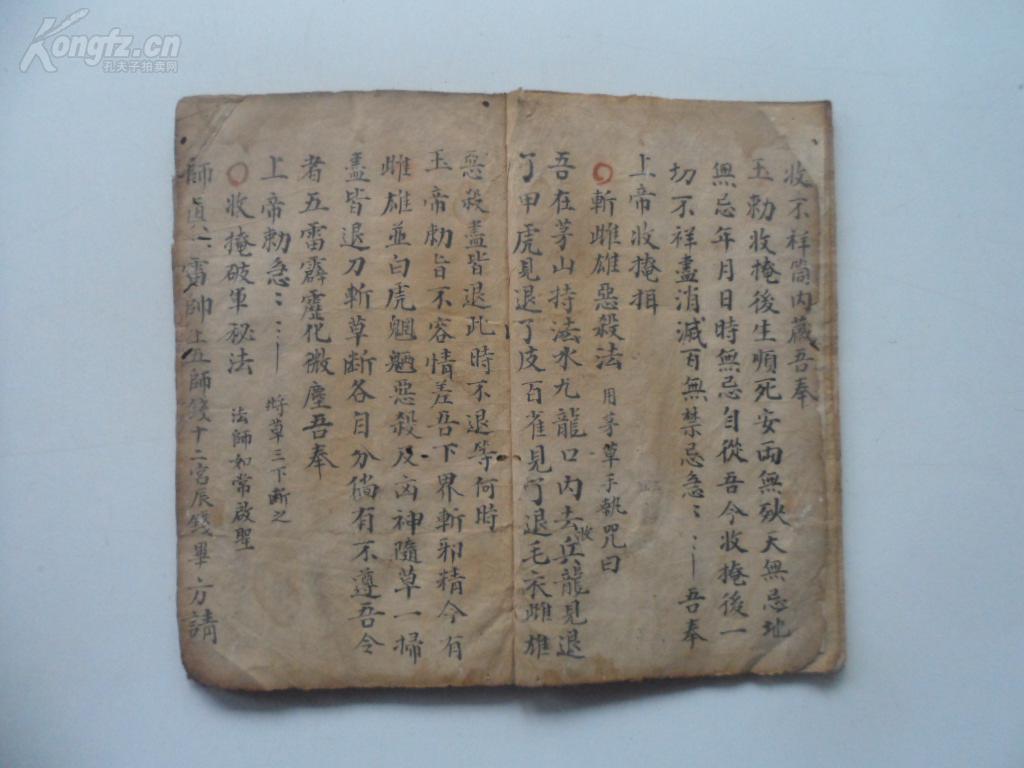 Kongfz.cn
孔夫子拍卖网
收不祥筒内藏吾奉
玉勅收掩後生順死安両無殃天無忌地
無忌年月日時無忌自從吾今收掩後一
切不祥盡消滅百無禁忌急ːː吾奉
上帝收掩揖
○斬雌雄惡殺法 用茅草手執咒曰
吾在茅山持法水九龍口内去彼兵龍見退
了甲虎見退了皮百雀見了退毛衣雌雄
惡殺盡皆退此時不退等何時
玉帝勅旨不容情差吾下界斬邪精今有
雌雄並白虎魍魎惡殺及凶神隨草一掃
盡皆退刀斬草断各自分倘有不遵吾令
者五雷霹靂化微塵吾奉
上帝勅急ːː 将草三下断之
○收掩破軍秘法 法師如常啟聖
師真 雷帥 上五師錢十二宮辰錢畢方請